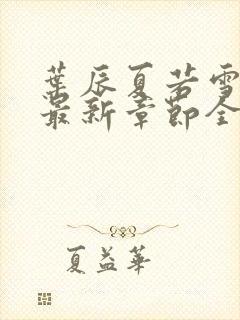 葉辰夏若雪
最新章節全
夏益華